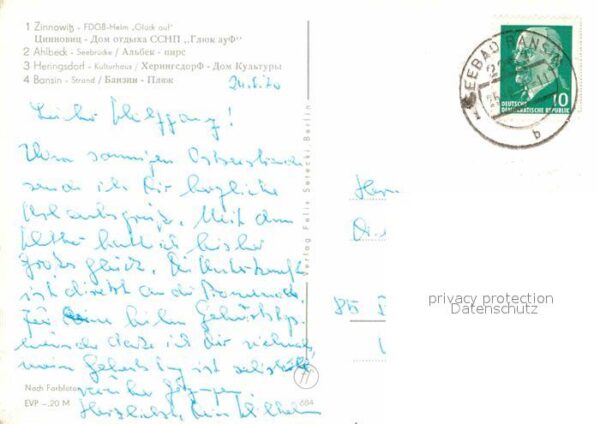 1 Zinnowitz - FDGB-Heim „Glück auf"
Цинновиц - Дом отдыха ССНП „Глюк ауФ"
2 Ahlbeck - Seebrücke / Альбек - пирс
3 Heringsdorf - Kulturhaus / ХерингсдорФ - Дом Культуры
4 Bansin - Strand / Банзин - Пляж
24.8.70
Lieber Wolfgang!
Vom sonnigen Ostseestrande
sende ich Dir herzliche
Urlaubsgrüße. Mit dem
Wetter hatte ich bisher
großes Glück. Die Unterkunft
ist direkt an der Promenade.
Für Deine lieben Geburtstags-
wünsche danke ich Dir vielmals,
mein Geburtstag ist
Herzlichst, Dein Wilhelm
Nach Farbfotos
EVP -,20 M
684
Verlag Felix Setecki, Berlin
SEEBAD BANSIN
b
DEUTSCHE
DEMOKRATISCHE REPUBLIK
10
privacy protection
Datenschutz